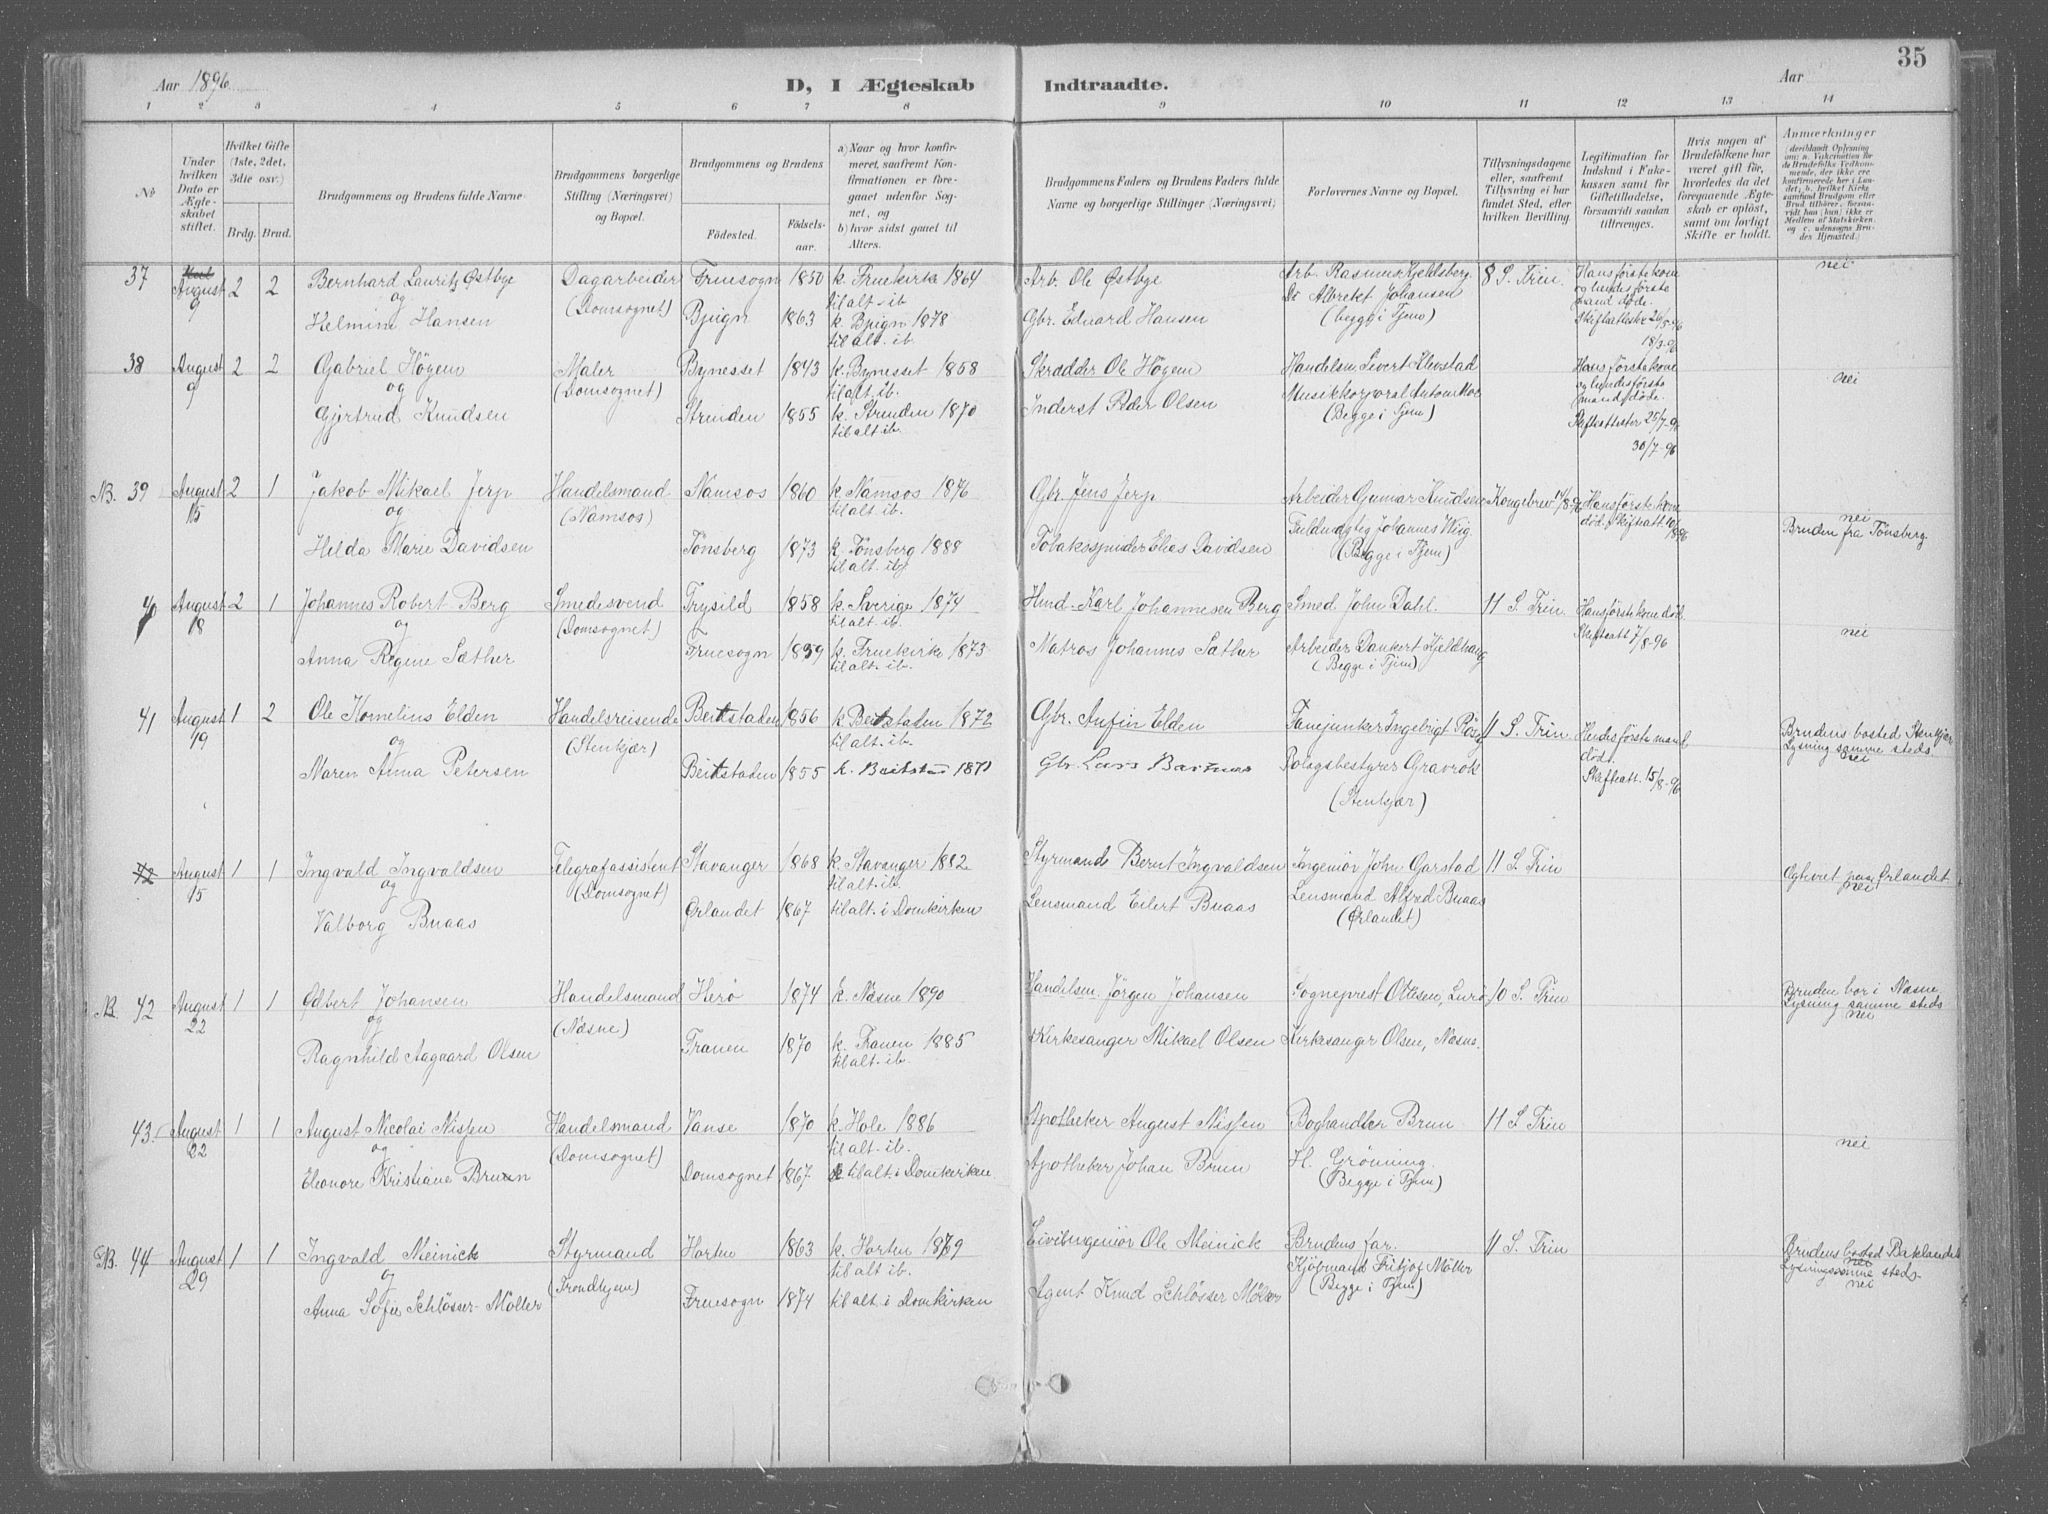 35
Aar 1896
D, I Ægteskab Indtraadte.
Aar
1 2 3 4 5 6 7 8 9 10 11 12 13 14
No
Under hvilken Dato er Ægteskabet stiftet.
Hvilket Gifte (1ste, 2det, 3die osv.)
Brdg. Brud.
Brudgommens og Brudens fulde Navne
Brudgommens borgerlige Stilling (Næringsvei) og Bopæl.
Brudgommens og Brudens
Födested. Födselsaar.
a) Naar og hvor konfirmeret, saafremt Konfirmationen er foregaaet udenfor Sognet, og
b) hvor sidst gaaet til Alters.
Brudgommens Faders og Brudens Faders fulde Navne og borgerlige Stillinger (Næringsvei)
Forlovernes Navne og Bopæl.
Tillysningsdagene eller, saafremt Tillysning ei har fundet Sted, efter hvilken Bevilling.
Legitimation for Indskud i Enkekassen samt for Giftetilladelse, forsaavidt saadan tiltrænges.
Hvis nogen af Brudefolkene har været gift för, hvorledes da det foregaaende Ægteskab er oplöst, samt om lovligt Skifte er holdt.
Anmærkninger
37 August 9 2 2 Bernhard Lauritz Østbye Dagarbeider Fruesogn 1850 k. Fruekirke 1864 Arb. Ole Østbye Arb. Rasmus Kjeldsberg 8 S. Trin. Hans første kone nei
og (Domsognet) til alt. ib. Do Albreket Johansen og hendes første mand døde.
Helmine Hansen Bjugn 1863 k. Bjugn 1878 Gbr. Edvard Hansen (begge i Tjem) Skifteattester 26/5-96
til alt. ib. 18/3-96
38 August 9 2 2 Gabriel Högem Maler Bynesset 1843 k. Bynesset 1858 Skrædder Ole Högem Handelsm. Sivert Klevstad Hans første kone nei
og (Domsognet) til alt. ib. Musikkorporal Anton Moe og hendes første mand døde.
Gjertrud Knudsen Strinden 1855 k. Strinden 1870 Inderst Peder Olsen (Begge i Tjem) Skifteattester 25/7-96
til alt. ib. 30/7-96
NB. 39 August 15 2 1 Jakob Mikael Jerp Handelsmand Namsos 1860 k. Namsos 1876 Gbr. Jens Jerp Arbeider Gunnar Knudsen Kongebrev 14/8-96 Hans første kone nei
og (Namsos) til alt. ib. Fuldmægtig Johannes Wiig død. Skifteatt. Bruden fra Tönsberg.
Hilda Marie Davidsen Tönsberg 1873 k. Tönsberg 1888 Tobaksspinder Elias Davidsen (Begge i Tjem)
til alt. ib.
40 August 18 2 1 Johannes Robert Berg Smedesvend Trysild 1858 k. Sverige 1874 Hmd. Karl Johannesen Berg Smed John Dahl. 11 S. Trin. Hans første kone død.
og (Domsognet) til alt. ib. Skifteatt 7/8-96 nei
Anna Regine Sæther Fruesogn 1859 k. Fruekirke 1873 Matros Johannes Sæther Arbeider Dankert Kjeldhaug
til alt. ib. (Begge i Tjem)
41 August 19 1 2 Ole Kornelius Elden Handelsreisende Beitstaden 1856 k Beitstaden 1872 Gbr. Anfin Elden Fanejunker Ingebrigt 11 S. Trin. Hendes første mand Brudens bosted Stenkjær
og (Stenkjær) til alt. ib. død. Lysning samme steds. nei
Maren Anna Petersen Beitstaden 1855 k. Beitstad 1870 Gbr. Lars Bolagsbestyrer Gravrok Skifteatt. 15/8-96
(Stenkjær)
42 August 15 1 1 Ingvald Ingvaldsen Telegrafassistent Stavanger 1868 k. Stavanger 1882 Styrmand Bernt Ingvaldsen Ingeniör John Garstad 11 S. Trin Ogteviet paa Ørlandet
og (Domsognet) til alt. ib. Lensmand Alfred Buaas nei
Valborg Buaas Ørlandet 1867 til alt. i Domkirken Lensmand Eilert Buaas (Ørlandet)
NB. 42 August 22 1 1 Edbert Johansen Handelsmand Herö 1874 k. Næsne 1890 Handelsm. Jörgen Johansen Sogneprest Ottesen, Lurö 10 S. Trin Bruden bor i Næsne
og (Næsne) Lysning samme steds nei
Ragnhild Aagaard Olsen Tranen 1870 k. Tranen 1885 Kirkesanger Mikael Olsen Kirkesanger Olsen, Næsne.
til alt. ib.
43 August 22 1 1 August Nicolai Nissen Handelsmand Vanse 1870 k. Hole 1886 Apotheker August Nissen Boghandler Brun 11 S Trin nei
og (Domsognet) til alt. ib.
Eleonore Kristiane Bruun Domsognet 1867 til alt. i Domkirken. Apotheker Johan Brun H. Grönning.
(Begge i Tjem)
NB. 44 August 29 1 1 Ingvald Meinick Styrmand Horten 1863 k. Horten 1879 Civilingeniör Ole Meinick Brudens far. 11 S. Trin Brudens bosted Baklandet
og (Trondhjem) til alt ib. Kjöbmand Fritjof Möller Lysning samme steds. nei
Anna Sofie Schlösser-Möller Fruesogn 1874 til alt. i Domkirken Agent Knud Schlösser Möller (Begge i Tjem)